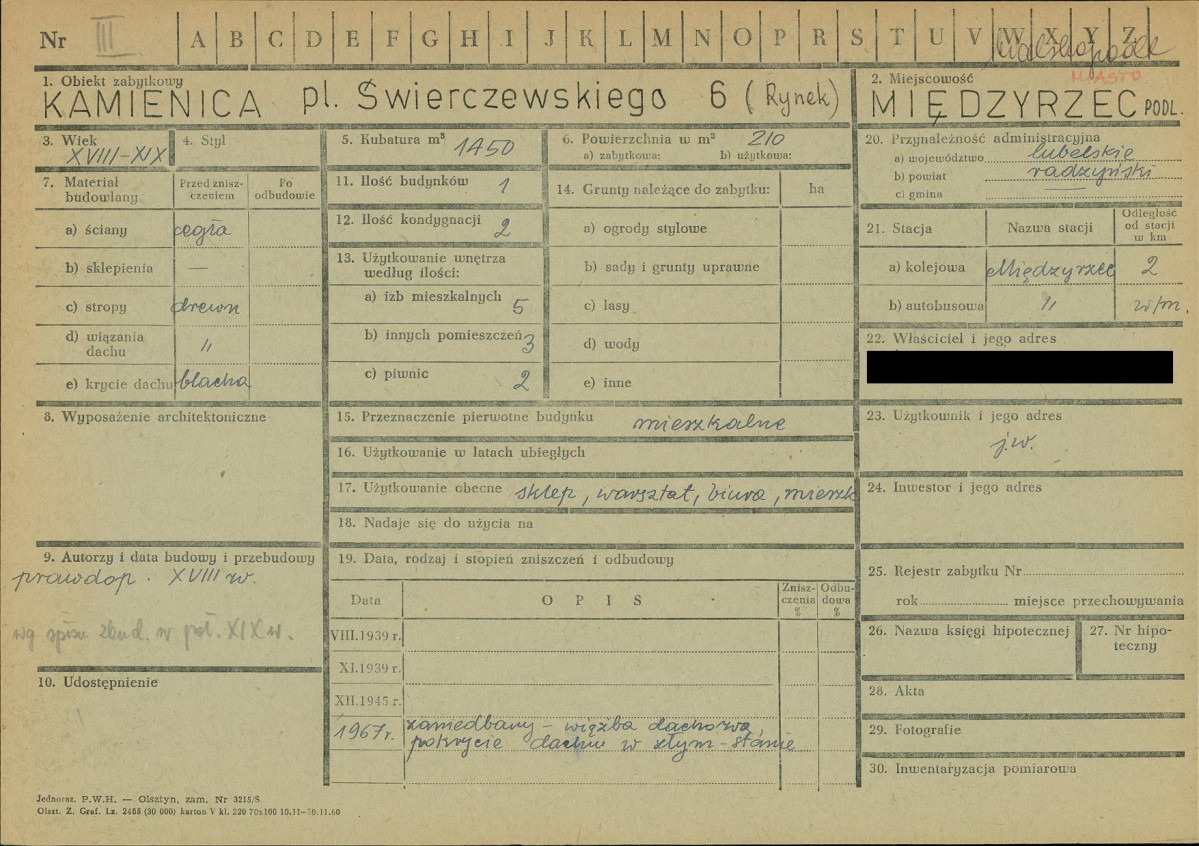 Nr III A B C D E F G H I J K L M N O P R S T U V W X Y Z
MIASTO
1. Obiekt zabytkowy
KAMIENICA pl. Świerczewskiego 6 (Rynek)
2. Miejscowość
MIĘDZYRZEC PODL.
3. Wiek
XVIII-XIX
4. Styl
5. Kubatura m³ 1450
6. Powierzchnia w m² 210
a) zabytkowa: b) użytkowa:
7. Materiał budowlany
Przed zniszczeniem
Po odbudowie
a) ściany cegła
b) sklepienia —
c) stropy drewn
d) wiązania dachu "
e) krycie dachu blacha
8. Wyposażenie architektoniczne
9. Autorzy i data budowy i przebudowy
prawdop. XVIII w.
wg spisu zbud. w poł. XIX w.
10. Udostępnienie
11. Ilość budynków 1
12. Ilość kondygnacji 2
13. Użytkowanie wnętrza
według ilości:
a) izb mieszkalnych 5
b) innych pomieszczeń 3
c) piwnic 2
14. Grunty należące do zabytku: ha
a) ogrody stylowe
b) sady i grunty uprawne
c) lasy
d) wody
e) inne
15. Przeznaczenie pierwotne budynku mieszkalne
16. Użytkowanie w latach ubiegłych
17. Użytkowanie obecne sklep, warsztat, biura, mieszk
18. Nadaje się do użycia na
19. Data, rodzaj i stopień zniszczeń i odbudowy
Data
OPIS
Zniszczenia %
Odbudowa %
VIII.1939 r.
XI.1939 r.
XII.1945 r.
1967 r. zaniedbany – więźba dachowa
pokrycie dachu w złym – stanie
20. Przynależność administracyjna
a) województwo lubelskie
b) powiat radzyński
c) gmina —
21. Stacja
Nazwa stacji
Odległość od stacji w km
a) kolejowa Międzyrzec 2
b) autobusowa " w/m.
22. Właściciel i jego adres
23. Użytkownik i jego adres
j.w.
24. Inwestor i jego adres
25. Rejestr zabytku Nr
rok miejsce przechowywania
26. Nazwa księgi hipotecznej
27. Nr hipoteczny
28. Akta
29. Fotografie
30. Inwentaryzacja pomiarowa
Jednoraz. P.W.H. — Olsztyn, zam. Nr 3215/S